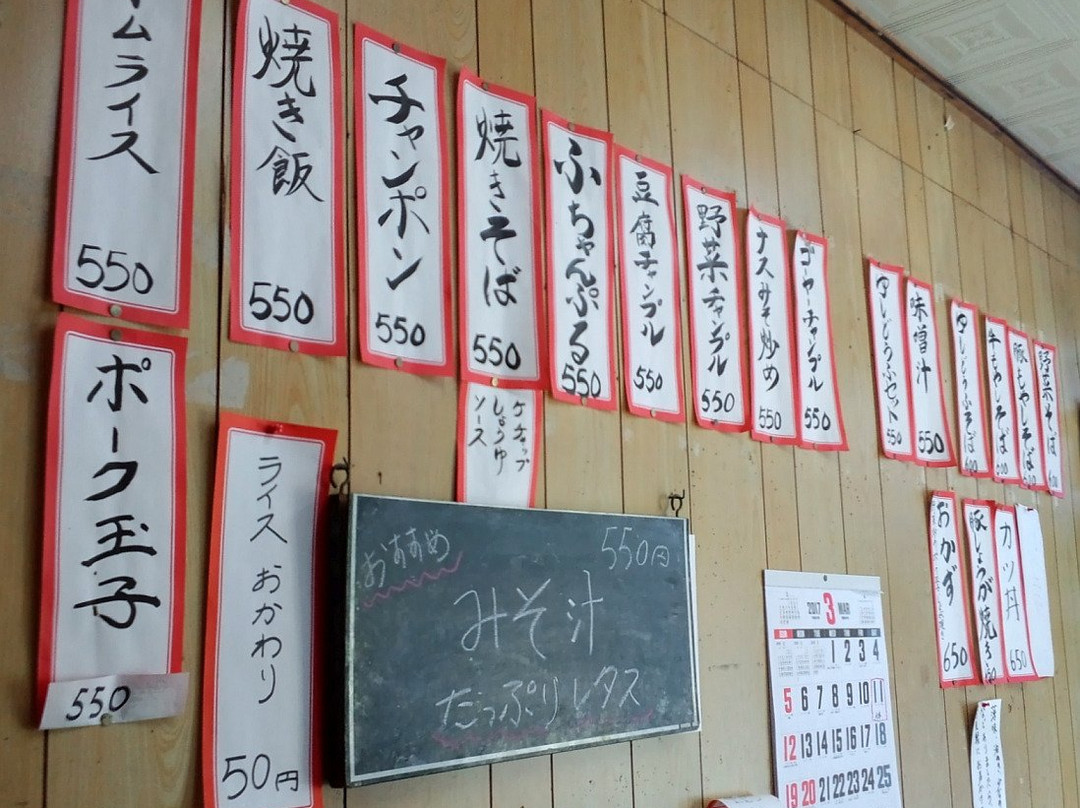 ムライス
550
焼き飯
550
チャンポン
550
焼きそば
550
ふちゃんぷる
550
豆腐チャンプル
550
野菜チャンプル
550
ナスみそ炒め
550
ゴーヤーチャンプル
550
550
味噌汁
550
600
牛もやしそば
600
豚もやしそば
野菜そば
ポーク玉子
550
ライス おかわり
50円
ケチャップ
しょうゆ
ソース
おすすめ
550円
みそ汁
たっぷりレタス
おかず
650
豚しょうが焼き
カツ丼
650
2017 3 MAR
SUN MON TUE WED THU FRI SAT
1 2 3 4
5 6 7 8 9 10 11
12 13 14 15 16 17 18
19 20 21 22 23 24 25